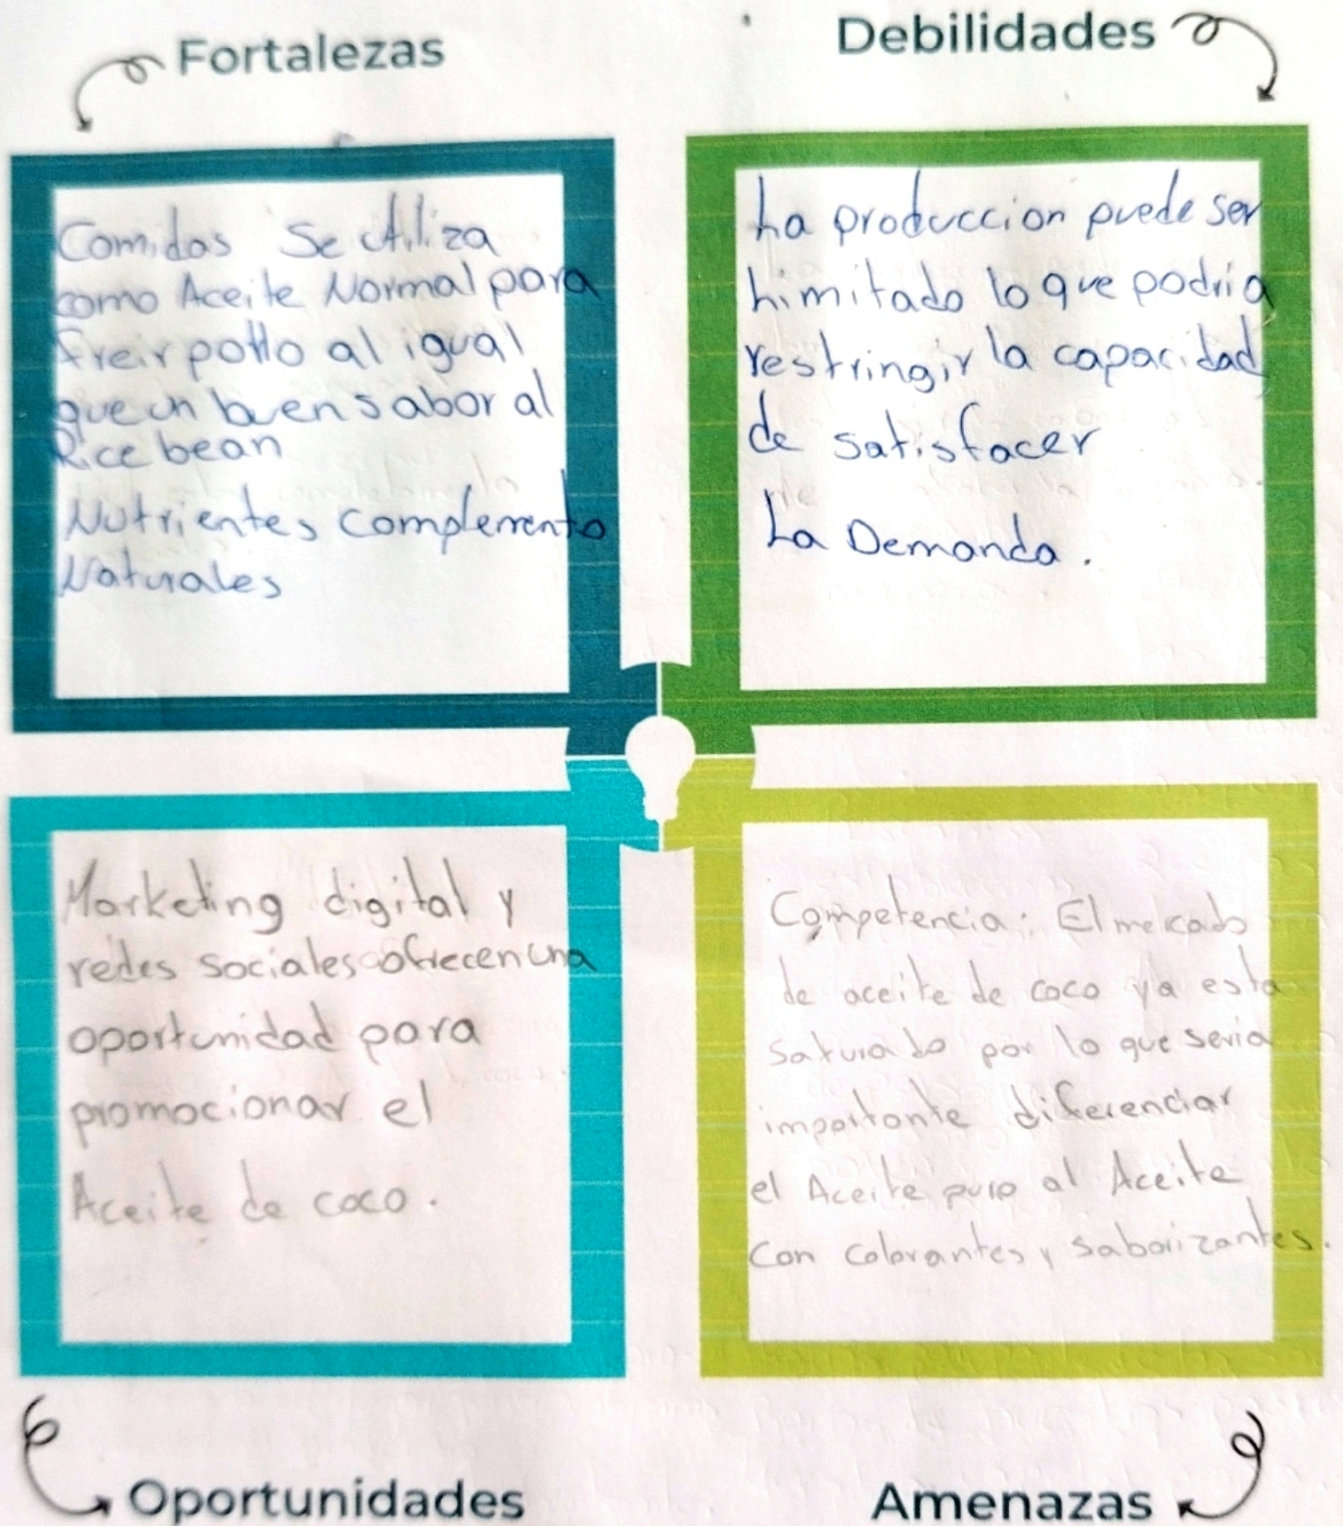 Fortalezas
Comidas Se utiliza
como Aceite Normal para
freir pollo al igual
que un buen sabor al
Rice bean
Nutrientes complemento
Naturales
Debilidades
La produccion puede ser
Limitado lo que podria
restringir la capacidad
de satisfacer
La Demanda.
Marketing digital y
redes sociales ofrecen una
oportunidad para
promocionar el
Aceite de coco.
Oportunidades
Competencia: El mercado
de aceite de coco ya esta
saturado por lo que seria
importante diferenciar
el Aceite puro al Aceite
con colorantes y saborizantes.
Amenazas